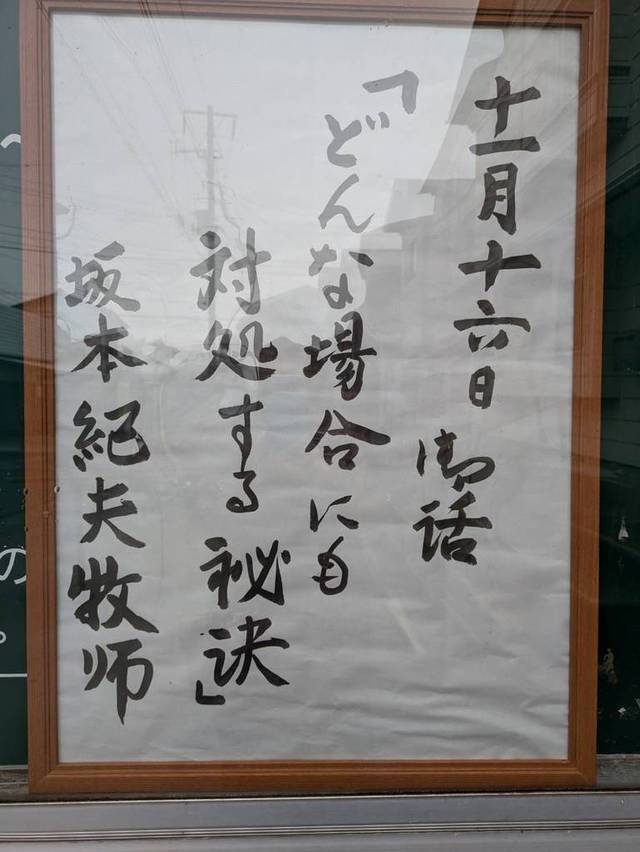 十一月十六日 御話
「どんな場合にも
対処する秘訣」
坂本紀夫牧師
の。